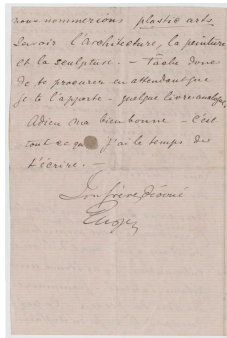 nous nommerions plastic arts,
savoir l'architecture, la peinture
et la sculpture. — Tâche donc
de te procurer en attendant que
je te l'apporte — quelque livre analogue
Adieu ma bien bonne — c'est
tout ce que j'ai le temps de
t'écrire. —
Ton frère dévoué